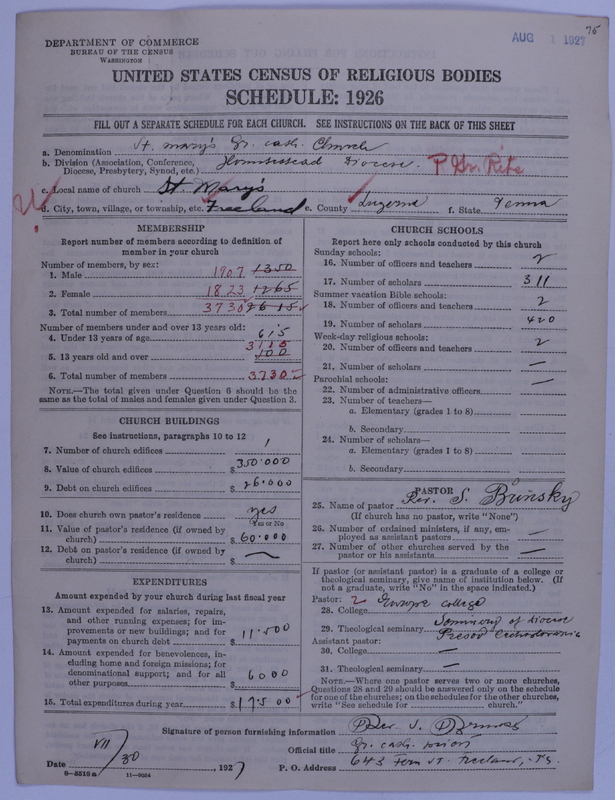 75
AUG 1 1927
DEPARTMENT OF COMMERCE
BUREAU OF THE CENSUS
WASHINGTON
UNITED STATES CENSUS OF RELIGIOUS BODIES
SCHEDULE: 1926
FILL OUT A SEPARATE SCHEDULE FOR EACH CHURCH. SEE INSTRUCTIONS ON THE BACK OF THIS SHEET
a. Denomination St. Mary's Gr. Cath. Church
b. Division (Association, Conference, Diocese, Presbytery, Synod, etc.) Homestead Diocese. P Gr. Rite
c. Local name of church St. Mary's
d. City, town, village, or township, etc. Freeland e. County Luzerne f. State Penna
MEMBERSHIP
Report number of members according to definition of member in your church
Number of members, by sex:
1. Male 1907 1350
2. Female 1823 1265
3. Total number of members 3730 2615
Number of members under and over 13 years old:
4. Under 13 years of age 615
5. 13 years old and over 3115
6. Total number of members 3730
NOTE.—The total given under Question 6 should be the same as the total of males and females given under Question 3.
CHURCH BUILDINGS
See instructions, paragraphs 10 to 12
7. Number of church edifices 1
8. Value of church edifices $350.000
9. Debt on church edifices $26.000
10. Does church own pastor's residence yes
Yes or No
11. Value of pastor's residence (if owned by church) $60.000
12. Debt on pastor's residence (if owned by church) $ —
EXPENDITURES
Amount expended by your church during last fiscal year
13. Amount expended for salaries, repairs, and other running expenses; for improvements or new buildings; and for payments on church debt $11.500
14. Amount expended for benevolences, including home and foreign missions; for denominational support; and for all other purposes $6000
15. Total expenditures during year $17500
CHURCH SCHOOLS
Report here only schools conducted by this church
Sunday schools:
16. Number of officers and teachers 2
17. Number of scholars 311
Summer vacation Bible schools:
18. Number of officers and teachers 2
19. Number of scholars 420
Week-day religious schools:
20. Number of officers and teachers 2
21. Number of scholars —
Parochial schools: —
22. Number of administrative officers
23. Number of teachers—
a. Elementary (grades 1 to 8)
b. Secondary
24. Number of scholars—
a. Elementary (grades 1 to 8)
b. Secondary
PASTOR
25. Name of pastor Rev. S.
(If church has no pastor, write "None")
26. Number of ordained ministers, if any, employed as assistant pastors —
27. Number of other churches served by the pastor or his assistants —
If pastor (or assistant pastor) is a graduate of a college or theological seminary, give name of institution below. (If not a graduate, write "No" in the space indicated.)
Pastor: 2
28. College Europe college
29. Theological seminary Seminary of diocese
Assistant pastor:
30. College —
31. Theological seminary —
NOTE.—Where one pastor serves two or more churches, Questions 28 and 29 should be answered only on the schedule for one of the churches; on the schedules for the other churches, write "See schedule for church."
Signature of person furnishing information Rev.
Official title Gr. Cath.
Date VII/30, 1927 P. O. Address 643 Fern St. Freeland,
8-5518a 11-9034